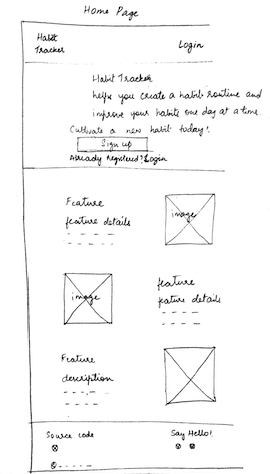 Home Page
Habit
Tracker
Login
Habit Tracker
helps you create a habit routine and
improve your habits one day at a time.
Cultivate a new habit today!
Sign up
Already registered? Login
Feature
feature details
image
image
feature
feature details
Feature
description
Source code
Say Hello!